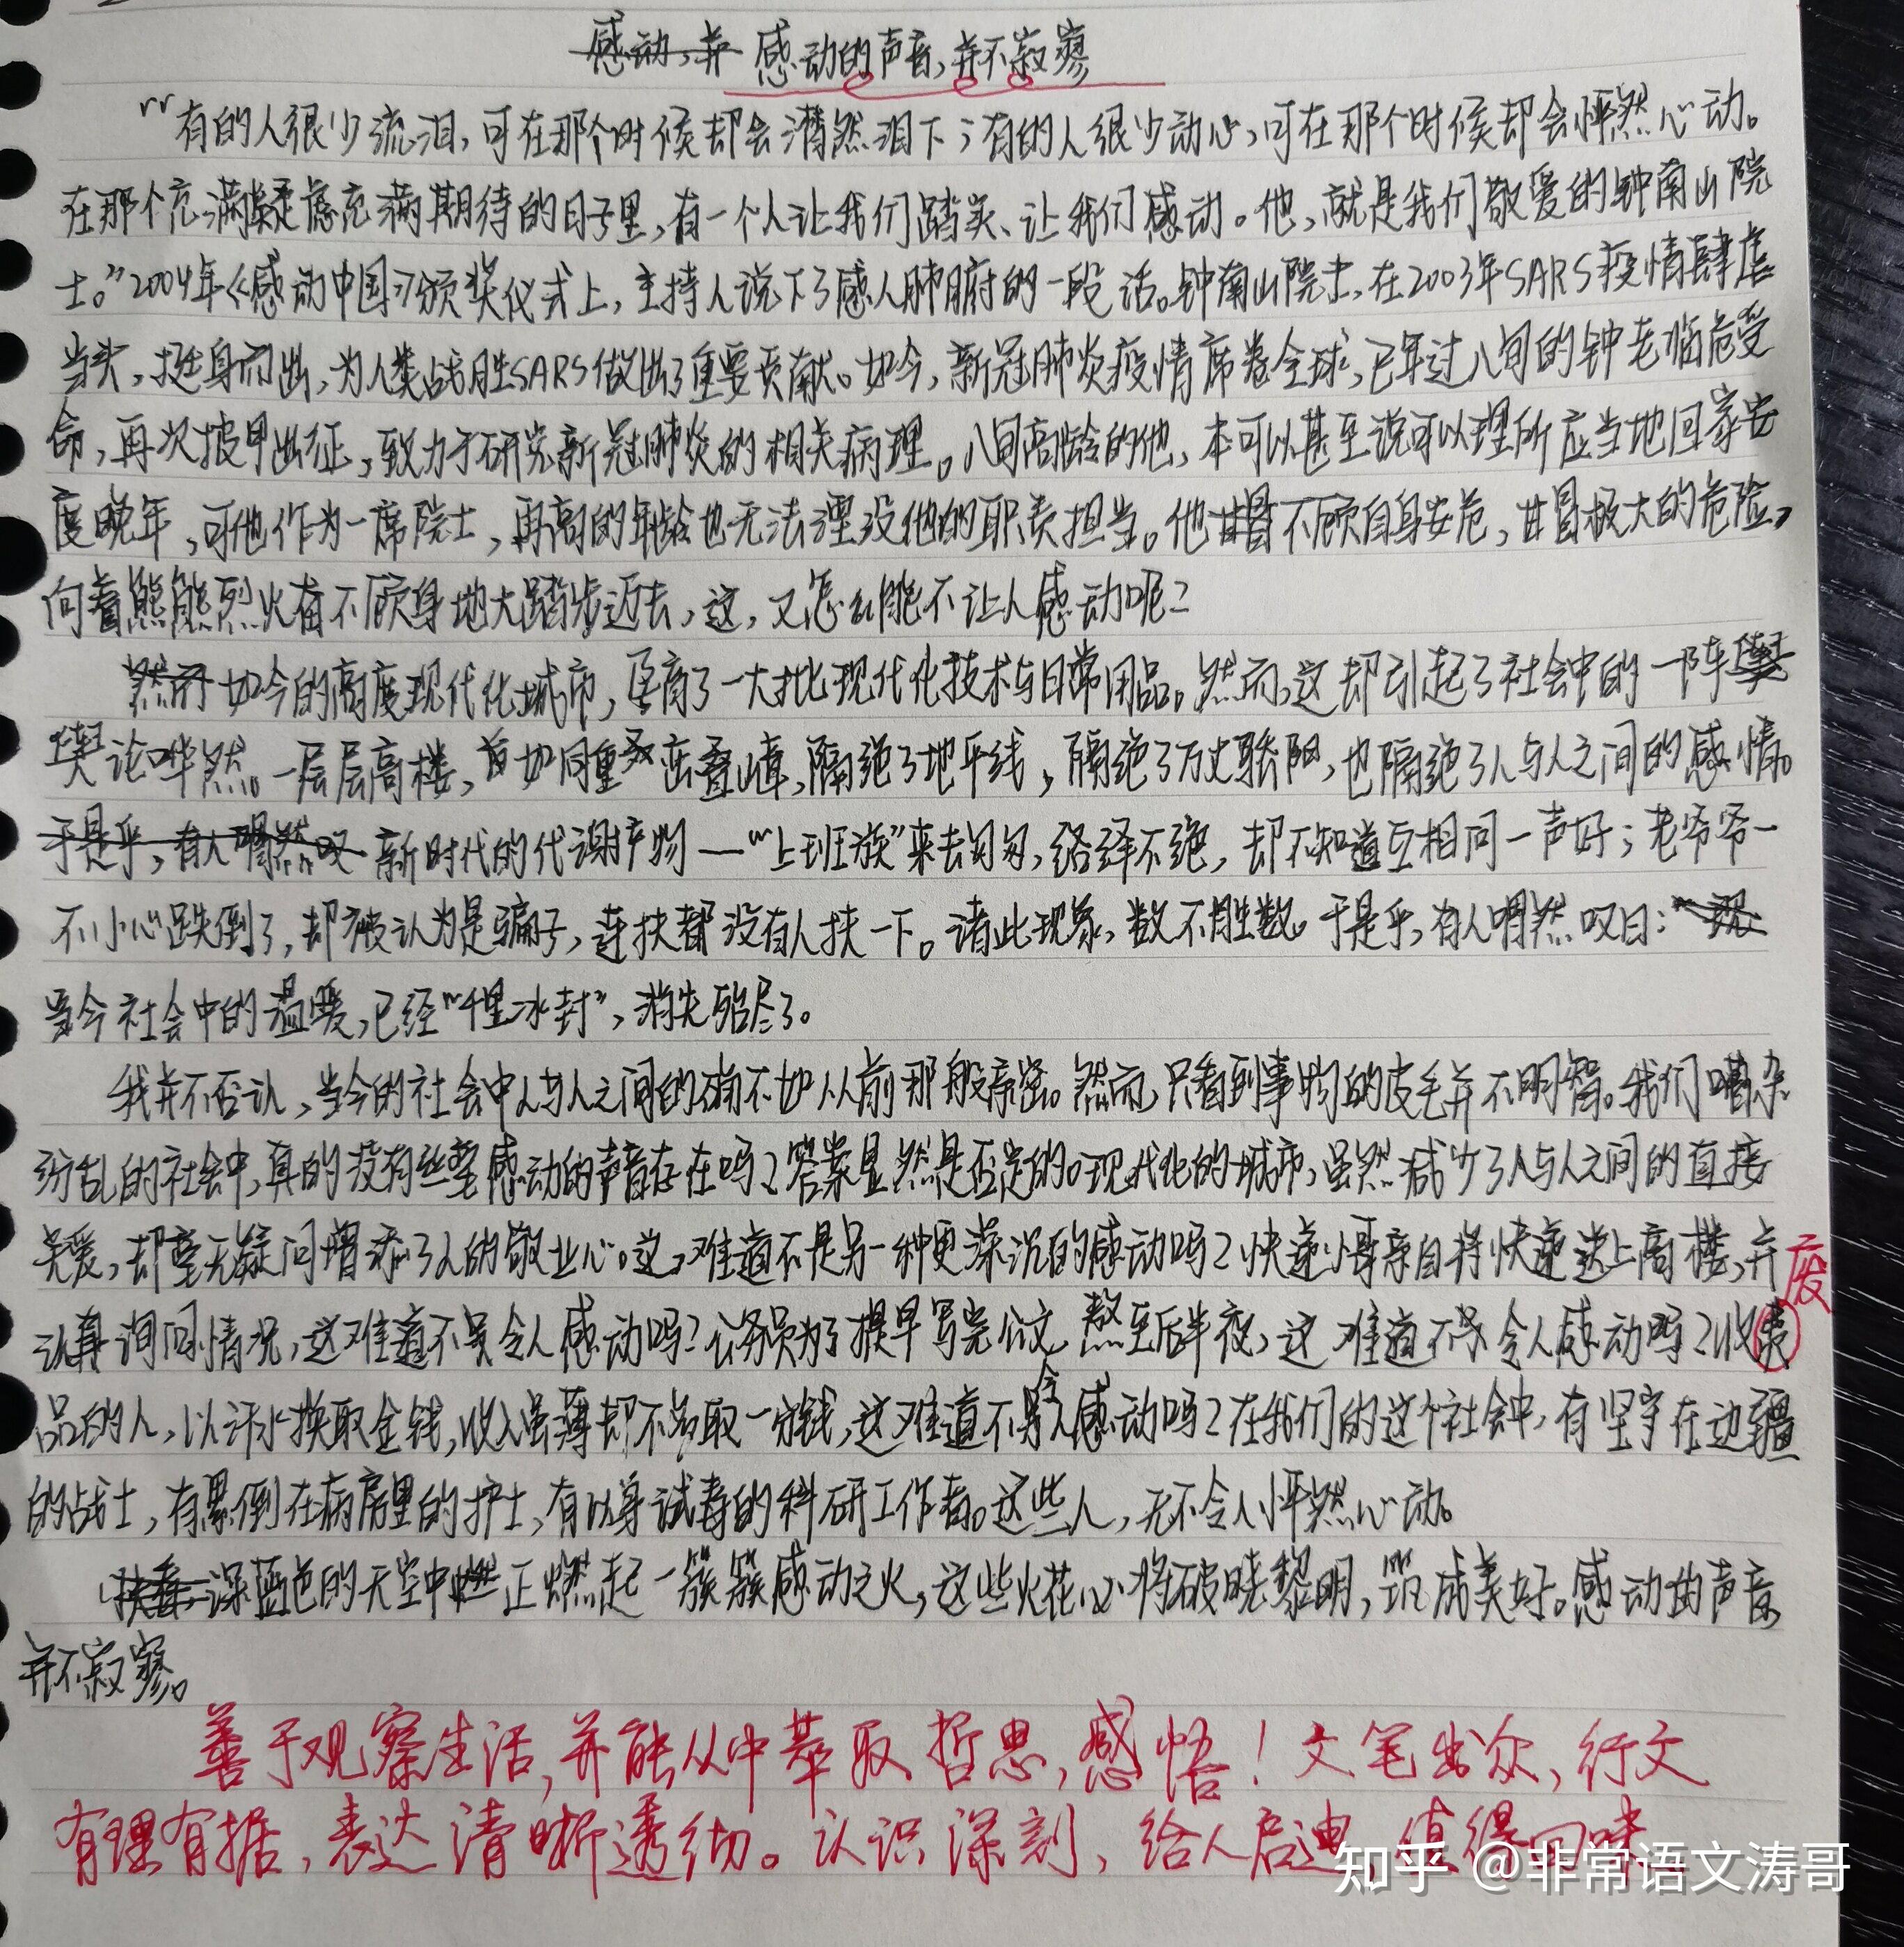 感动的声音,并不寂寥
"有的人很少流泪,可在那个时候却会潸然泪下;有的人很少动心,可在那个时候却会怦然心动。
在那个充满疑虑充满期待的日子里,有一个人让我们踏实、让我们感动。他,就是我们敬爱的钟南山院
士。"2004年《感动中国》颁奖仪式上,主持人说下了感人肺腑的一段话。钟南山院士,在2003年SARS疫情肆虐
当头,挺身而出,为人类战胜SARS做出了重要贡献。如今,新冠肺炎疫情席卷全球,已年过八旬的钟老临危受
命,再次披甲出征,致力于研究新冠肺炎的相关病理。八旬高龄的他,本可以甚至说可以理所应当地回家安
度晚年,可他作为一席院士,再高的年龄也无法湮没他的职责担当。他不顾自身安危,甘冒极大的危险,
向着熊熊烈火奋不顾身地大踏步迈去,这,又怎么能不让人感动呢?
如今的高度现代化城市,孕育了一大批现代化技术与日常用品。然而,这却引起了社会中的一阵
舆论哗然。一层层高楼,如同重峦叠嶂,隔绝了地平线,隔绝了历史骄阳,也隔绝了人与人之间的感情。
新时代的代谢产物——"上班族"来去匆匆,络绎不绝,却不知道互相问一声好;老爷爷一
不小心跌倒了,却被认为是骗子,连扶都没有人扶一下。诸此现象,数不胜数。于是乎,有人喟然叹曰:
当今社会中的温暖,已经"千里冰封",消失殆尽了。
我并不否认,当今的社会中人与人之间的确不如从前那般亲密。然而,只看到事物的皮毛并不明智。我们嘈杂
纷乱的社会中,真的没有丝毫感动的声音存在吗?答案显然是否定的。现代化的城市,虽然减少了人与人之间的直接
关爱,却毫无疑问增添了人的敬业心。这,难道不是另一种更深沉的感动吗?快递小哥亲自将快递送上高楼,并
废
认真询问情况,这难道不令人感动吗?公务员为了提早写完公文,熬至后半夜,这难道不令人感动吗?收
品的人,以汗水换取金钱,收入虽薄却不多取一分钱,这难道不令人感动吗?在我们的这个社会中,有坚守在边疆
的战士,有累倒在病房里的护士,有以身试毒的科研工作者。这些人,无不令人怦然心动。
深蓝色的天空中正燃起一簇簇感动之火,这些火花必将破晓黎明,筑成美好。感动的声音,
并不寂寥。
善于观察生活,并能从中萃取哲思,感悟!文笔出众,行文
有理有据,表达清晰透彻。认识深刻,给人启迪,值得回味
知乎 @非常语文涛哥